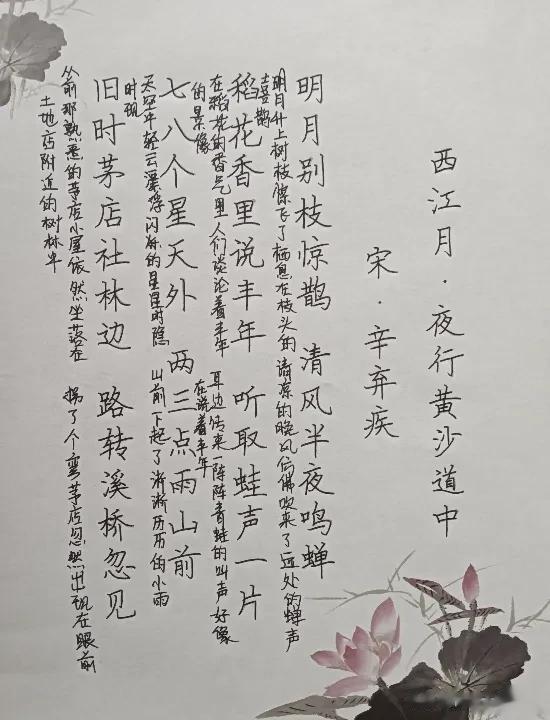 西江月·夜行黄沙道中
宋·辛弃疾
明月别枝惊鹊 清风半夜鸣蝉
明月升上树枝惊飞了栖息在枝头的喜鹊 清凉的晚风仿佛吹来了远处的蝉声
稻花香里说丰年 听取蛙声一片
在稻花的香气里人们谈论着丰年的景像 耳边传来一阵阵青蛙的叫声好像在说着丰年
七八个星天外 两三点雨山前
天空中轻云漂浮闪烁的星星时隐时现 山前下起了淅淅历历的小雨
旧时茅店社林边 路转溪桥忽见
从前那熟悉的茅店小屋依然坐落在土地店附近的树林中 拐了个弯茅店忽然出现在眼前